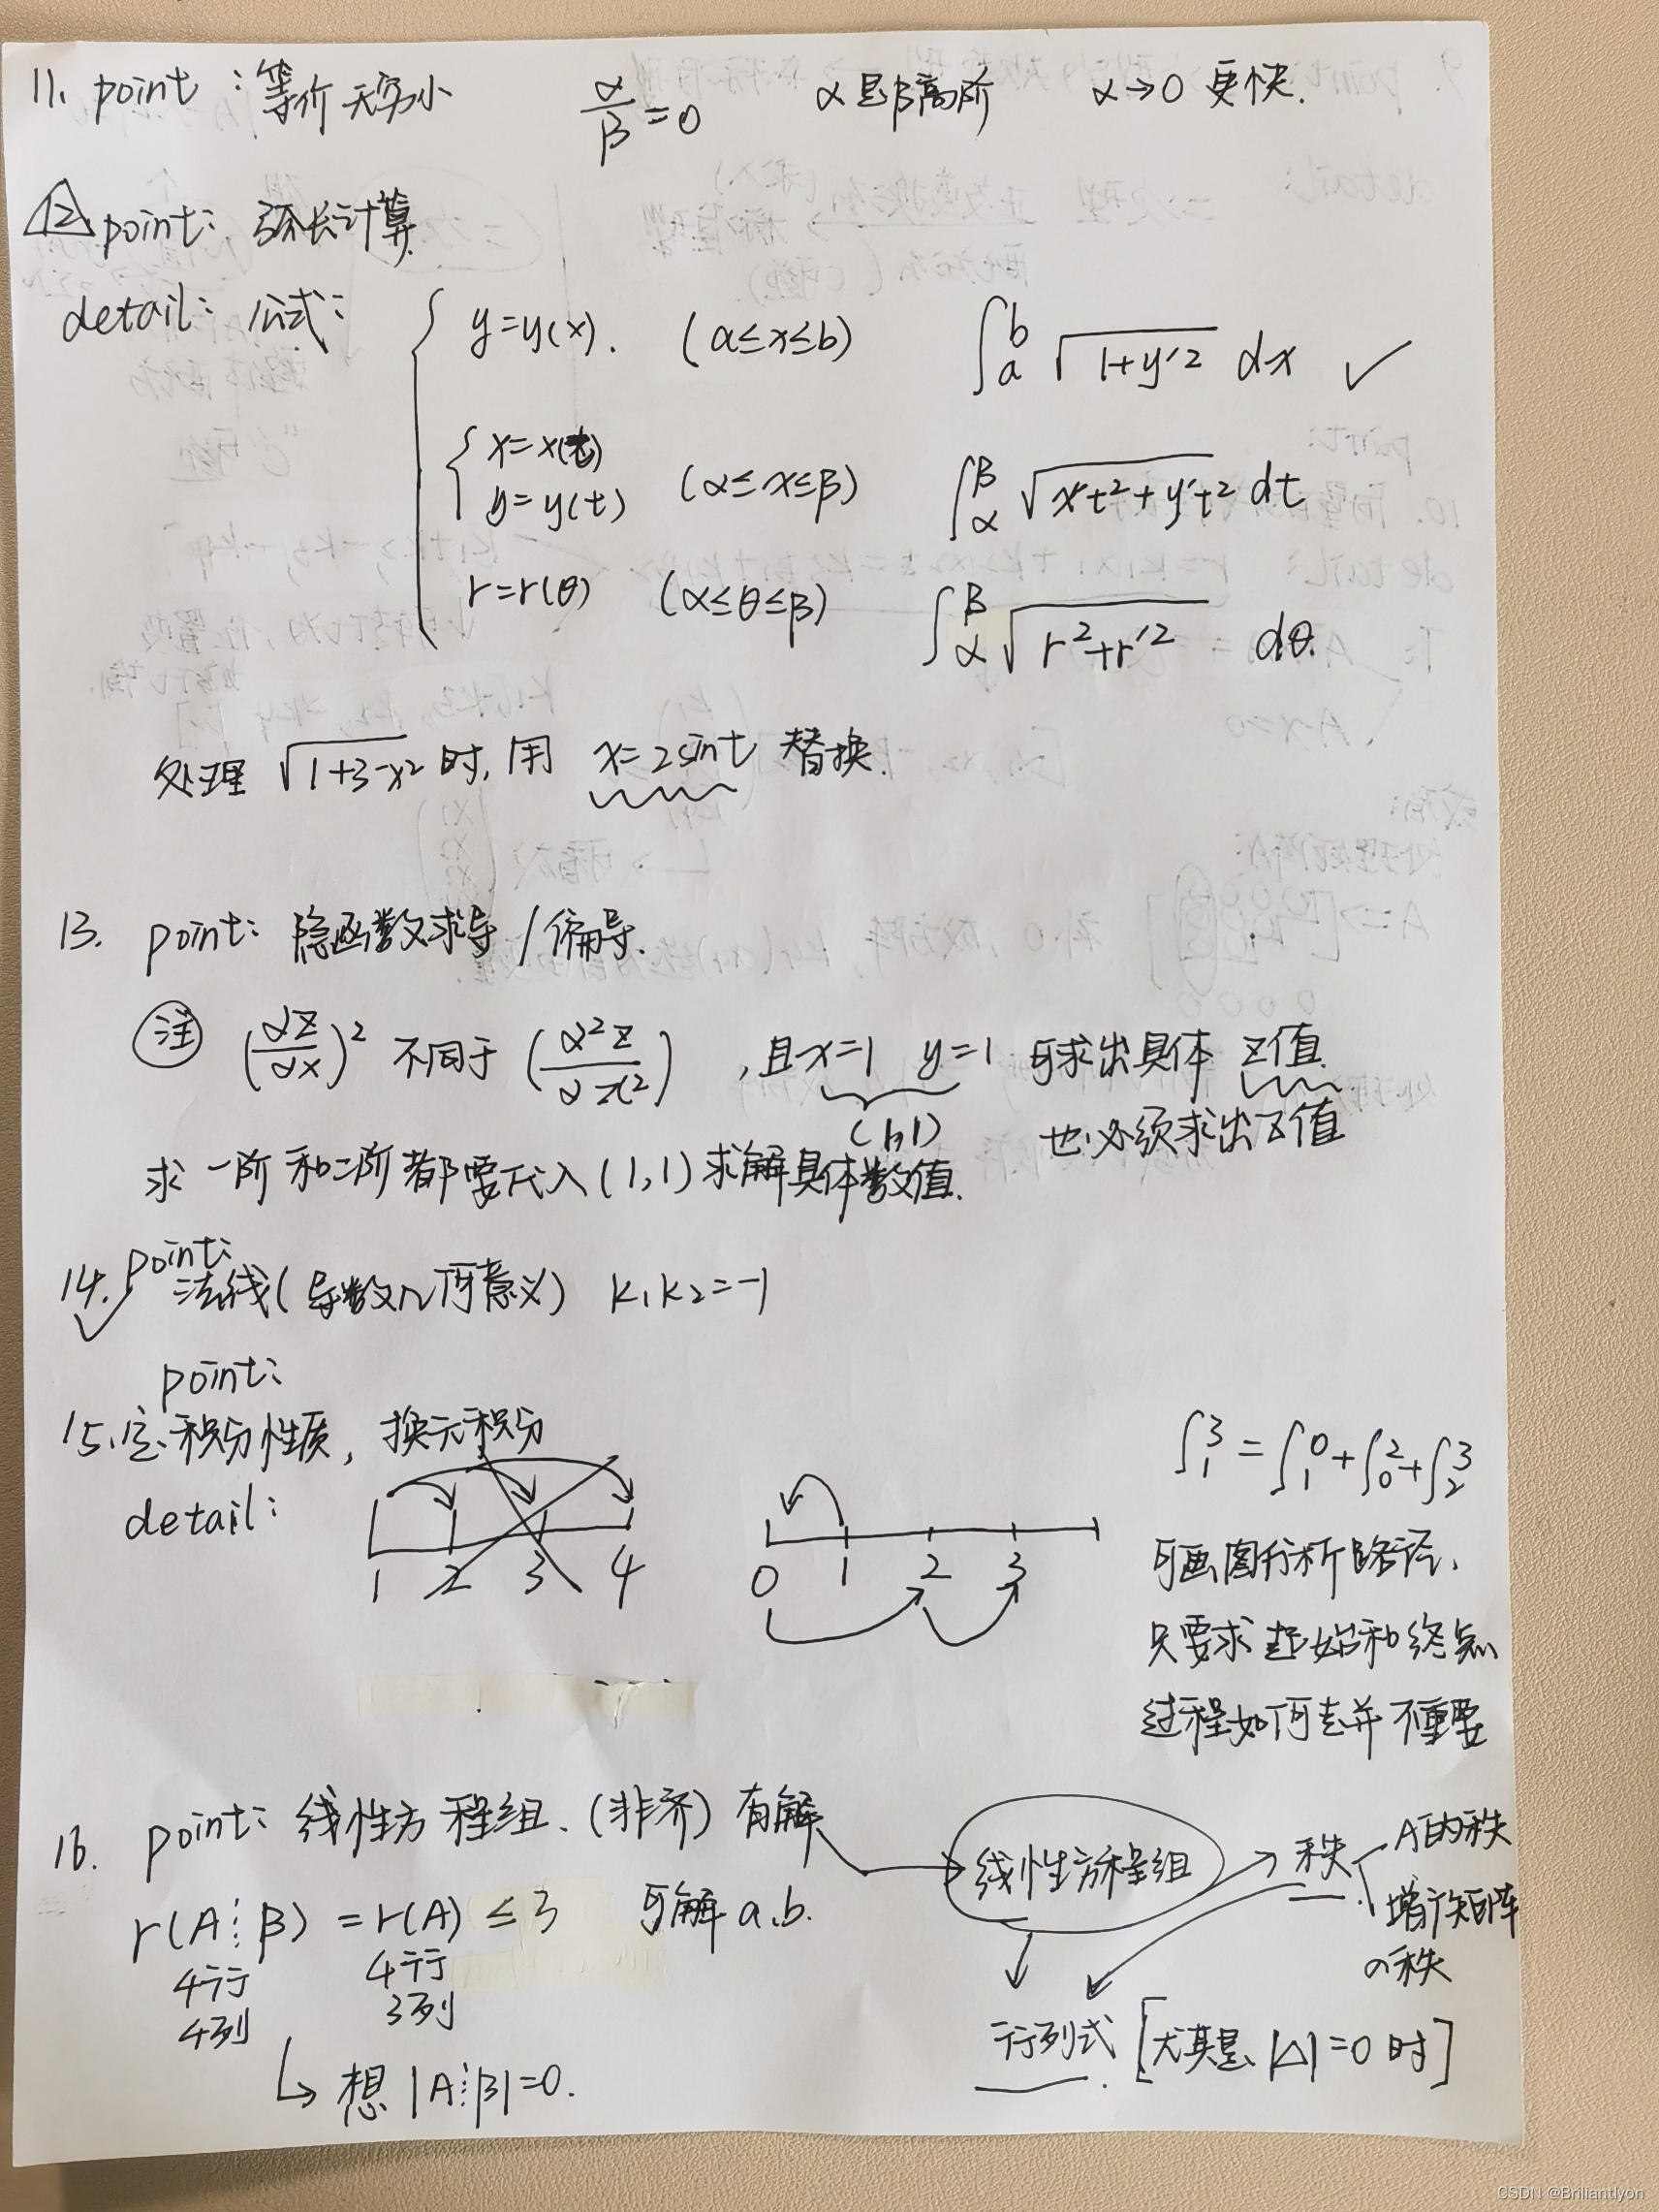 11. point：等价无穷小 α/β=0 α是β高阶 α→0 更快.
12. point：弧长计算.
detail：公式：
y=y(x). (a≤x≤b) ∫_a^b √(1+y'²) dx ✓
x=x(t)
y=y(t) (α≤x≤β) ∫_α^β √(x't²+y't²) dt
r=r(θ) (α≤θ≤β) ∫_α^β √(r²+r'²) dθ.
处理 √(1+3-x²) 时, 用 x=2sint 替换.
13. point：隐函数求导/偏导.
注 (∂z/∂x)² 不同于 (∂²z/∂x²) , 且x=1 y=1 可求出具体 Z值.
(1,1) 也必须求出Z值
求一阶和二阶都要代入(1,1)求解具体数值.
point：
14. 法线(导数几何意义) k₁k₂=-1
point：
15. 定积分性质, 换元积分
detail：
1 2 3 4
0 1 2 3
∫_1^3 = ∫_1^0 + ∫_0^2 + ∫_2^3
可画图分析路径,
只要求起始和终点
过程如何走并不重要
16. point：线性方程组.(非齐)有解
线性方程组
秩
A的秩
增广矩阵
の秩
r(A⋮β)=r(A)≤3 可解a.b.
4行 4行
4列 3列
想 |A⋮β|=0.
行列式. [尤其是|△|=0 时]
CSDN @Brillantlyon